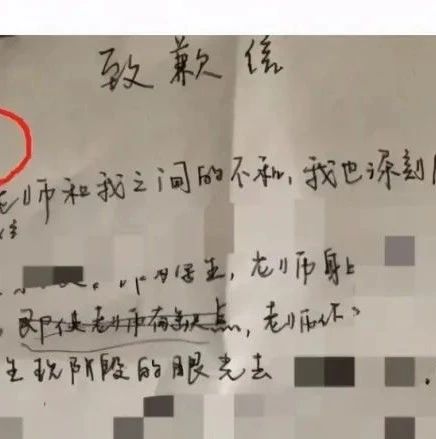 致歉信
老师和我之间的不和，我也深刻
生，老师身上
即使老师有缺点，老师
生现阶段的眼光去